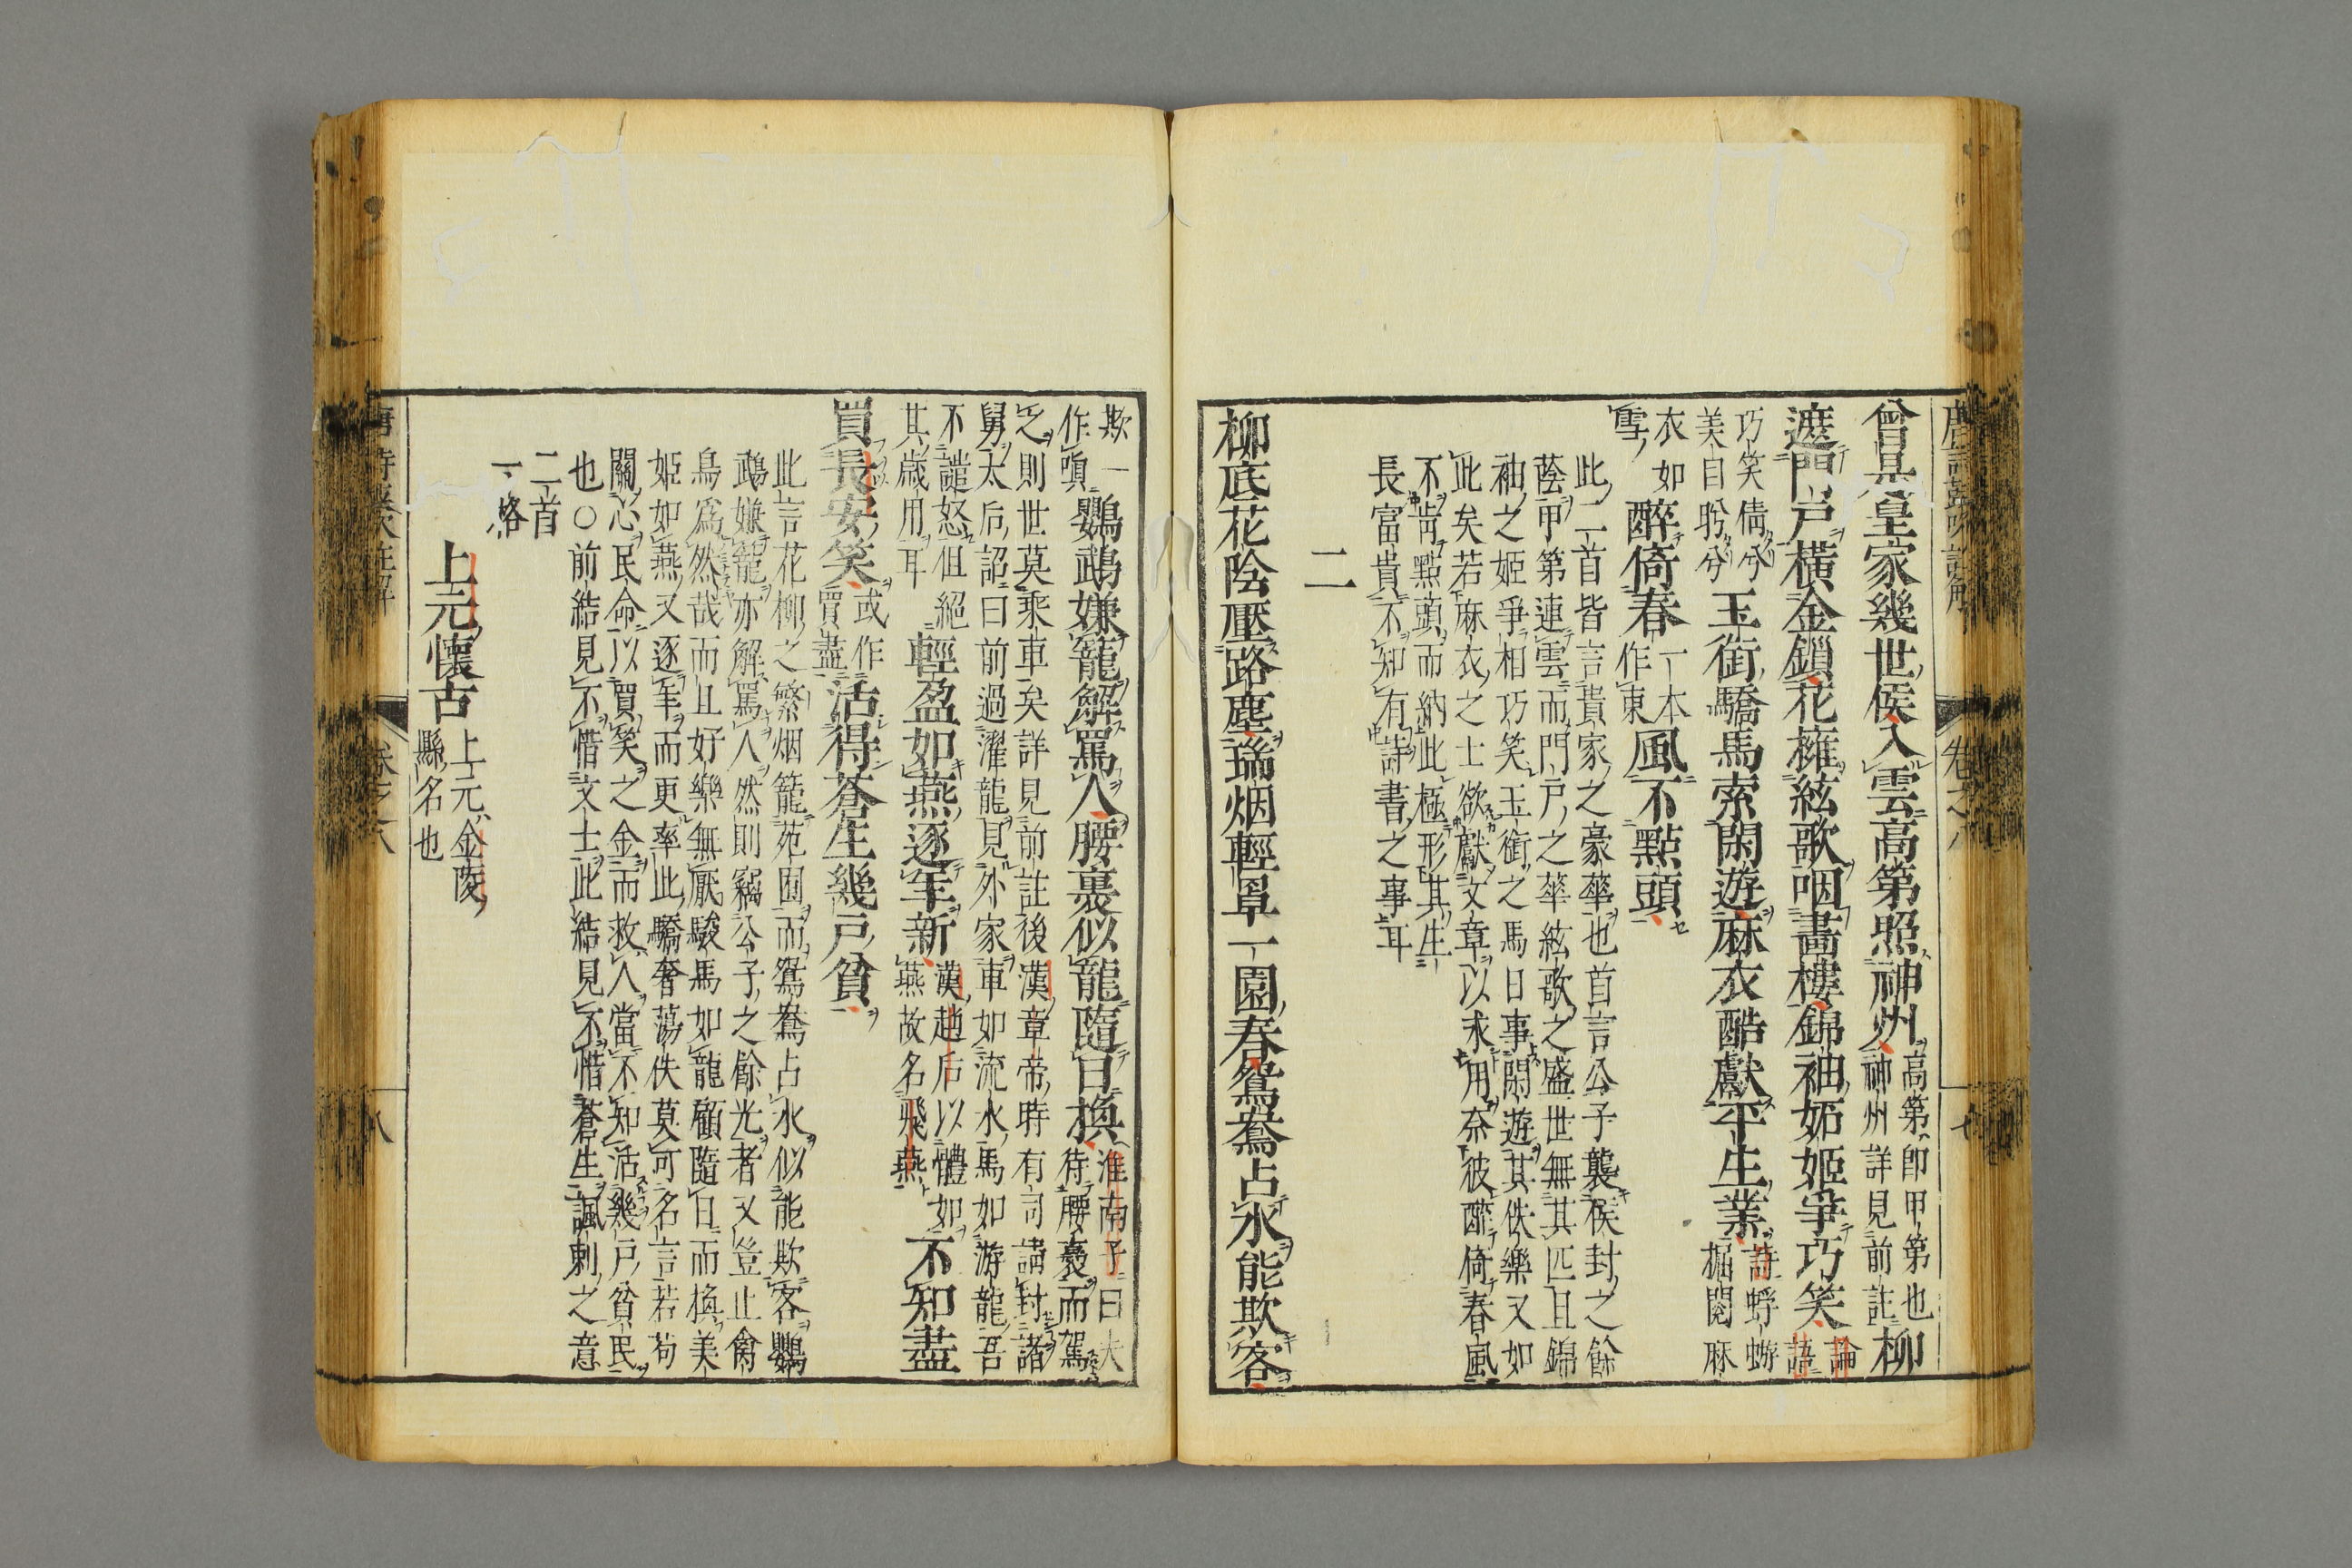 唐詩鼓吹註解
卷之八
七
曾是皇家幾世侯入雲高第照神州高第即甲第也神州詳見前註柳
遮門戸橫金鎖花擁絃歌咽畫樓錦袖妬姬爭巧笑論語
巧笑倩兮美目盻兮玉銜驕馬索閑遊麻衣酷獻平生業詩蜉蝣掘閱麻
衣如雪醉倚春一本作東風不點頭
此二首皆言貴家之豪華也首言公子襲侯封之餘
蔭甲第連雲而門戸之華絃歌之盛世無其匹且錦
袖之姬爭相巧笑玉銜之馬日事閑遊其佚樂又如
此矣若麻衣之士欲獻文章以求用奈彼醉倚春風
不肯點頭而納此極形其生
長富貴不知有詩書之事耳
二
柳底花陰壓路塵瑞烟輕罩一園春鴛鴦占水能欺客
欺一作嗔鸚鵡嫌籠解罵人腰裏似龍隨日換淮南子曰夫待腰褭而駕
之則世莫乘車矣詳見前註後漢章帝時有司請封諸
舅太后詔曰前過濯龍見外家車如流水馬如游龍吾
不譴怒但絕其歲用耳輕盈如燕逐年新漢趙后以體如燕故名飛燕不知盡
買長安笑或作買盡活得蒼生幾戸貧
此言花柳之繁烟籠苑囿而鴛鴦占水似能欺客鸚
鵡嫌籠亦解罵人然則竊公子之餘光者又豈止禽
鳥爲然哉而且好樂無厭駿馬如龍顧隨日而換美
姬如燕又逐年而更率此驕奢蕩佚莫可名言若苟
關心民命以買笑之金而救人當不知活幾戸貧民
也○前結見不惜文士此結見不惜蒼生諷刺之意
二首
一畧
上元懷古上元金陵縣名也
卷之八
八